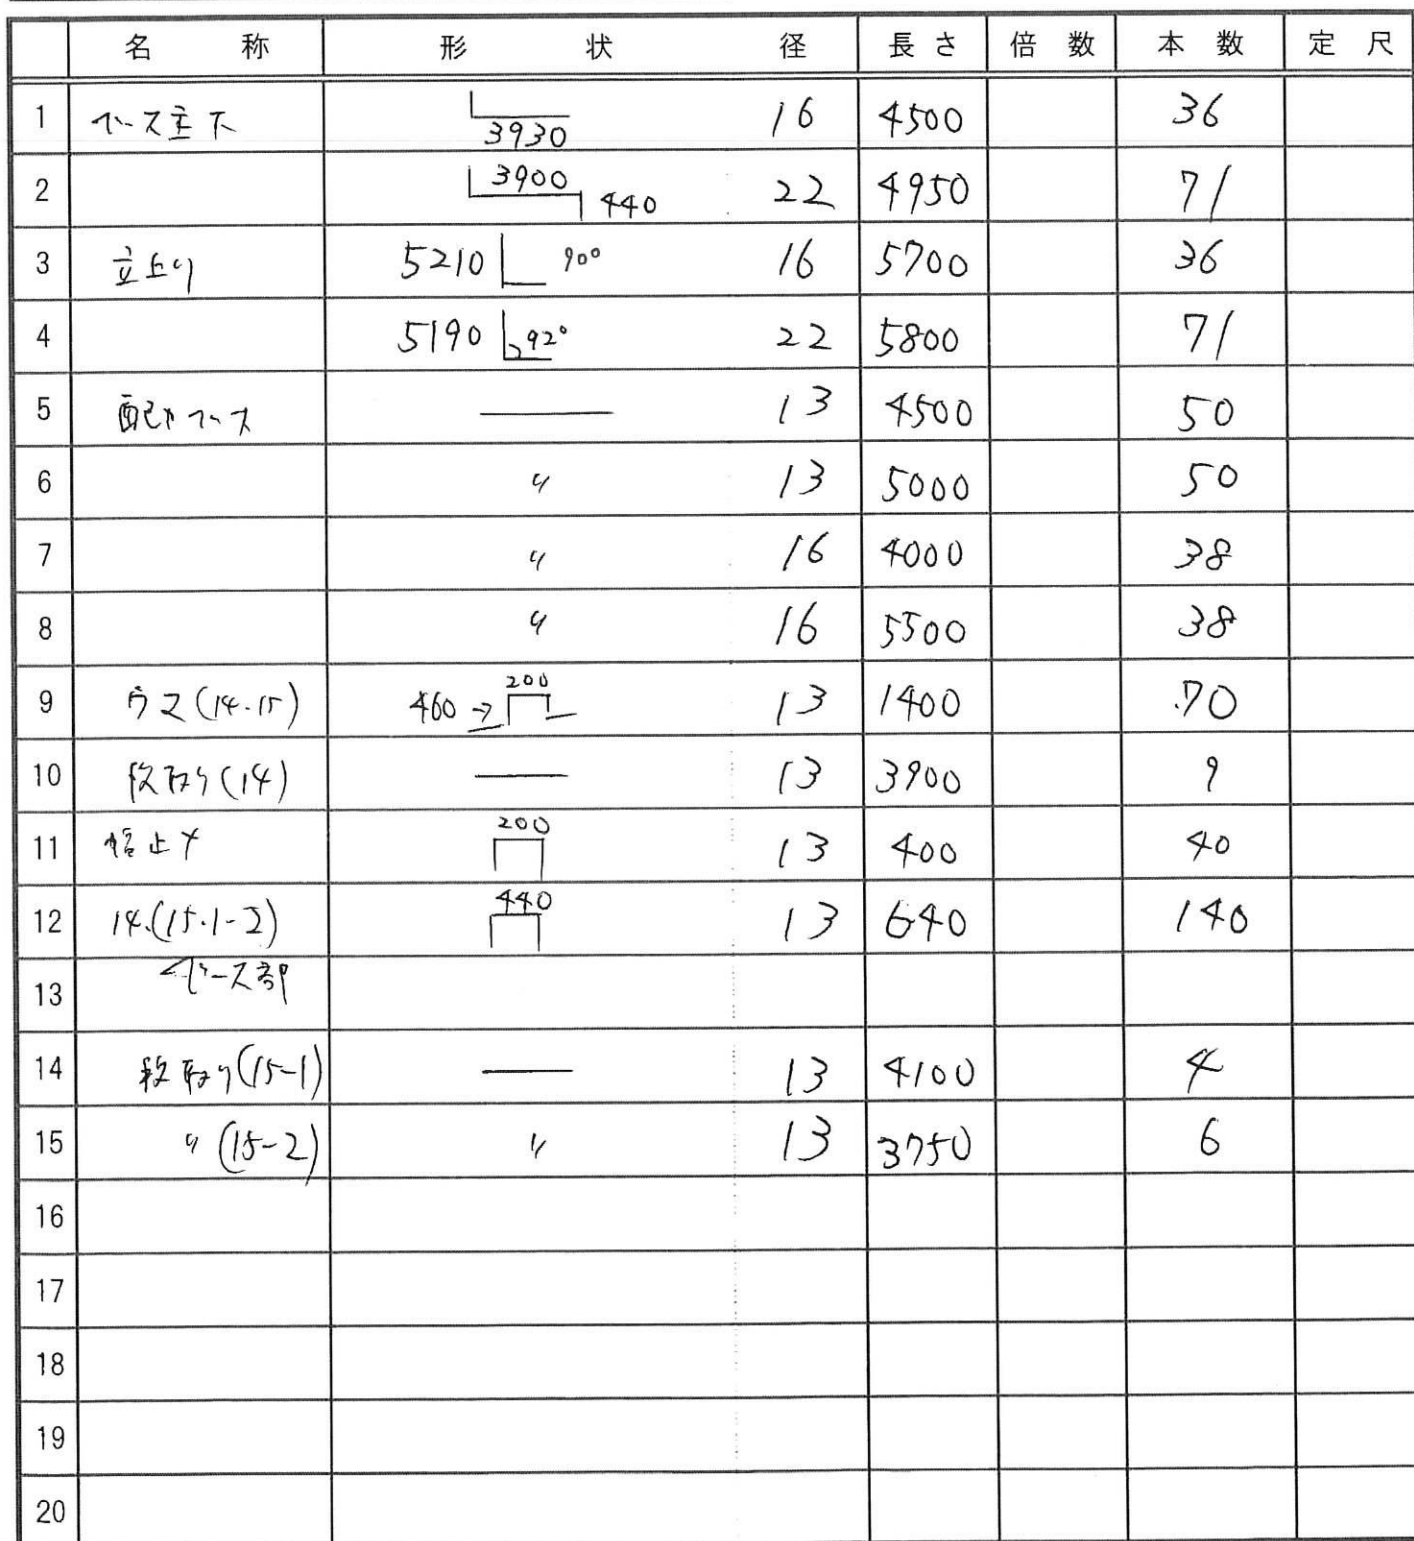 名 称 形 状 径 長さ 倍数 本数 定尺
1 ベース主下 3930 16 4500 36
2 3900 440 22 4950 71
3 立上り 5210 90° 16 5700 36
4 5190 92° 22 5800 71
5 配力ベース 13 4500 50
6 〃 13 5000 50
7 〃 16 4000 38
8 〃 16 5500 38
9 ウマ(14.15) 460 → 200 13 1400 70
10 段取り(14) 13 3900 9
11 巾止メ 200 13 400 40
12 14.(15.1-2) 440 13 640 140
13 ベース部
14 段取り(15-1) 13 4100 4
15 〃(15-2) 〃 13 3750 6
16
17
18
19
20